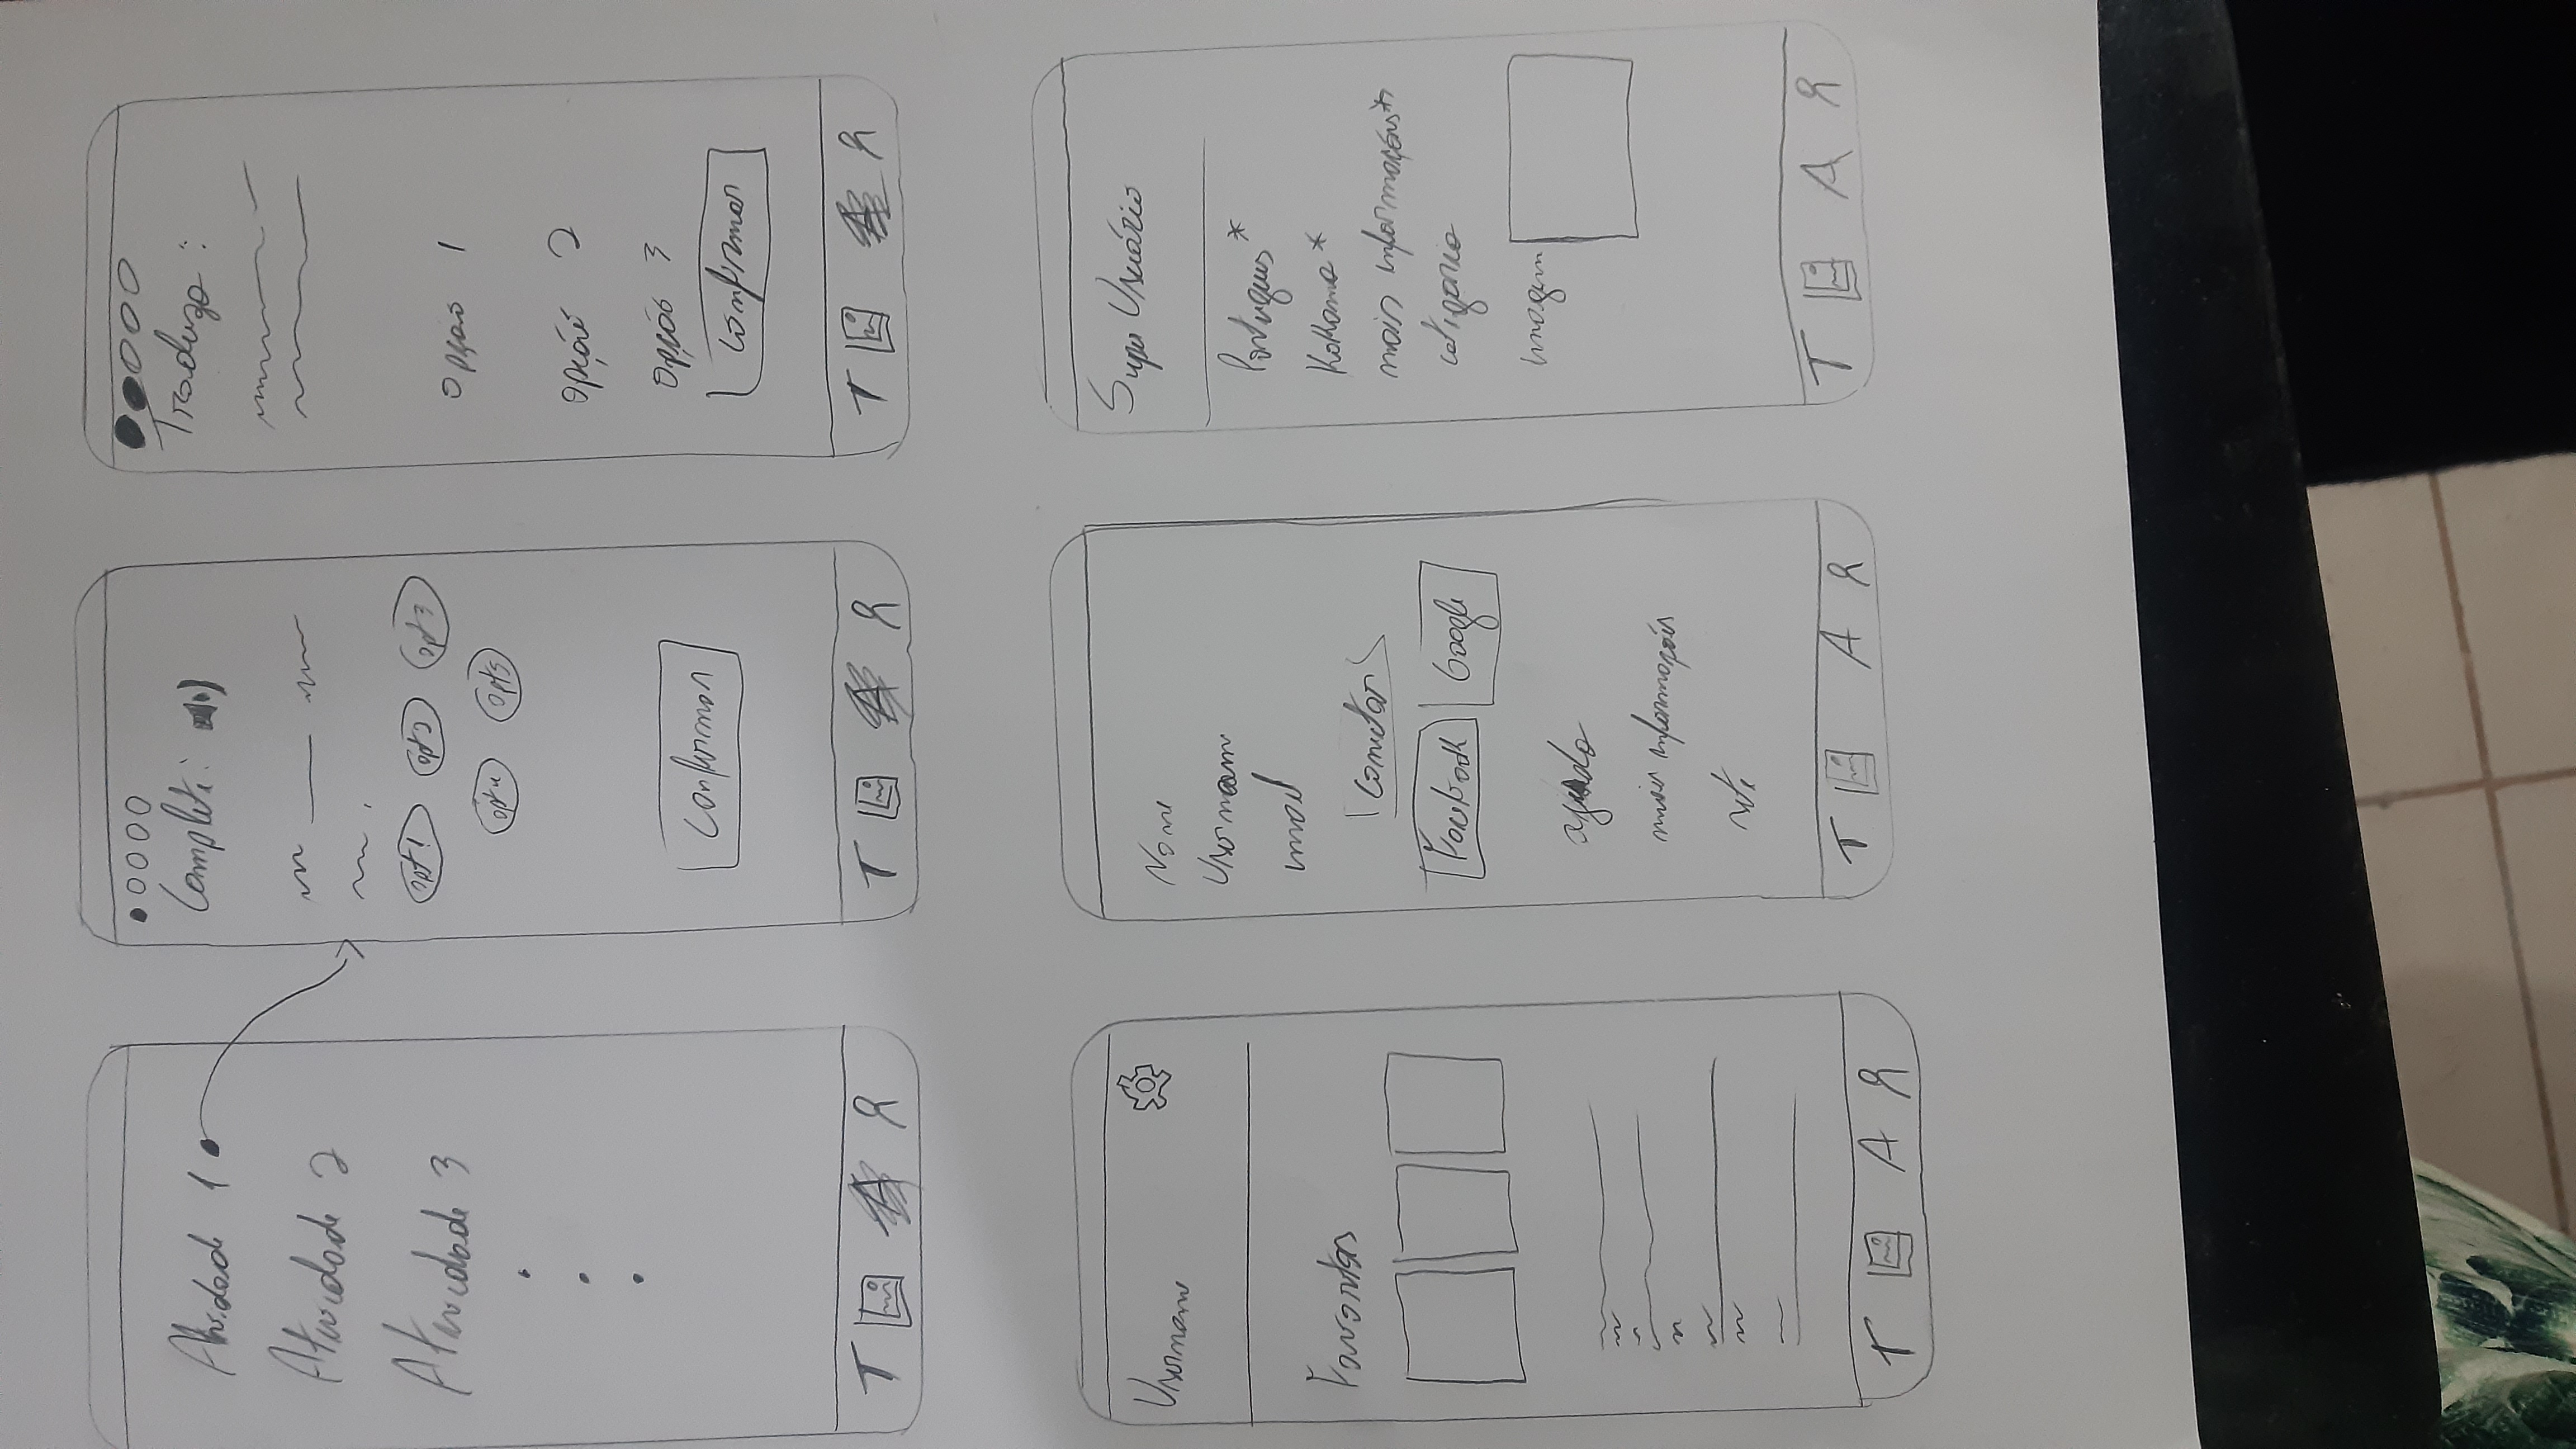 Atividade 1
Atividade 2
Atividade 3
T A
Complete:
opt 1 opt 2 opt 3
opt 4 opt 5
Confirmar
T A
Traduza :
Opção 1
Opção 2
Opção 3
Confirmar
T A
Username
Favoritos
T A
Nome
Username
email
Conectar
Facebook Google
ajuda
mais informações
site
T A
Super Usuário
Portugues*
Kokama*
mais informações*
categoria
imagem
T A